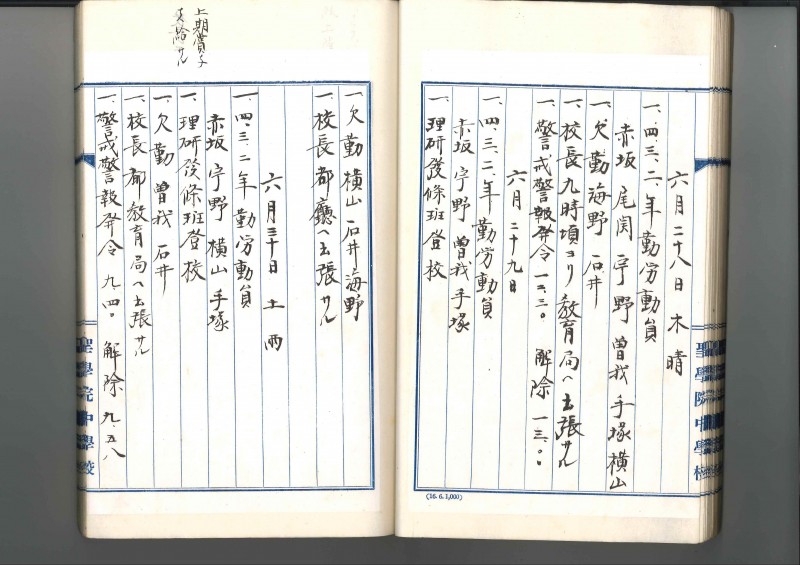 六月二十八日 木 晴
一、四、三、二、年勤労動員
赤坂 尾関 宇野 曽我 手塚 横山
一、欠勤 海野 石井
一、校長九時頃ヨリ教育局ヘ出張サル
一、警戒警報発令 一二、三〇 解除 一三、〇〇
六月二十九日
一、四、三、二、年勤労動員
赤坂 宇野 曽我 手塚
一、理研發條班登校
聖學院中學校
(16. 6. 1,000)
上期賞与
支給サル
一、欠勤 横山 石井 海野
一、校長都廳ヘ出張サル
六月三十日 土 雨
一、四、三、二年勤労動員
赤坂 宇野 横山 手塚
一、理研發條班登校
一、欠勤 曽我 石井
一、校長都教育局ヘ出張サル
一、警戒警報発令 九、四〇 解除 九、五八
聖學院中學校